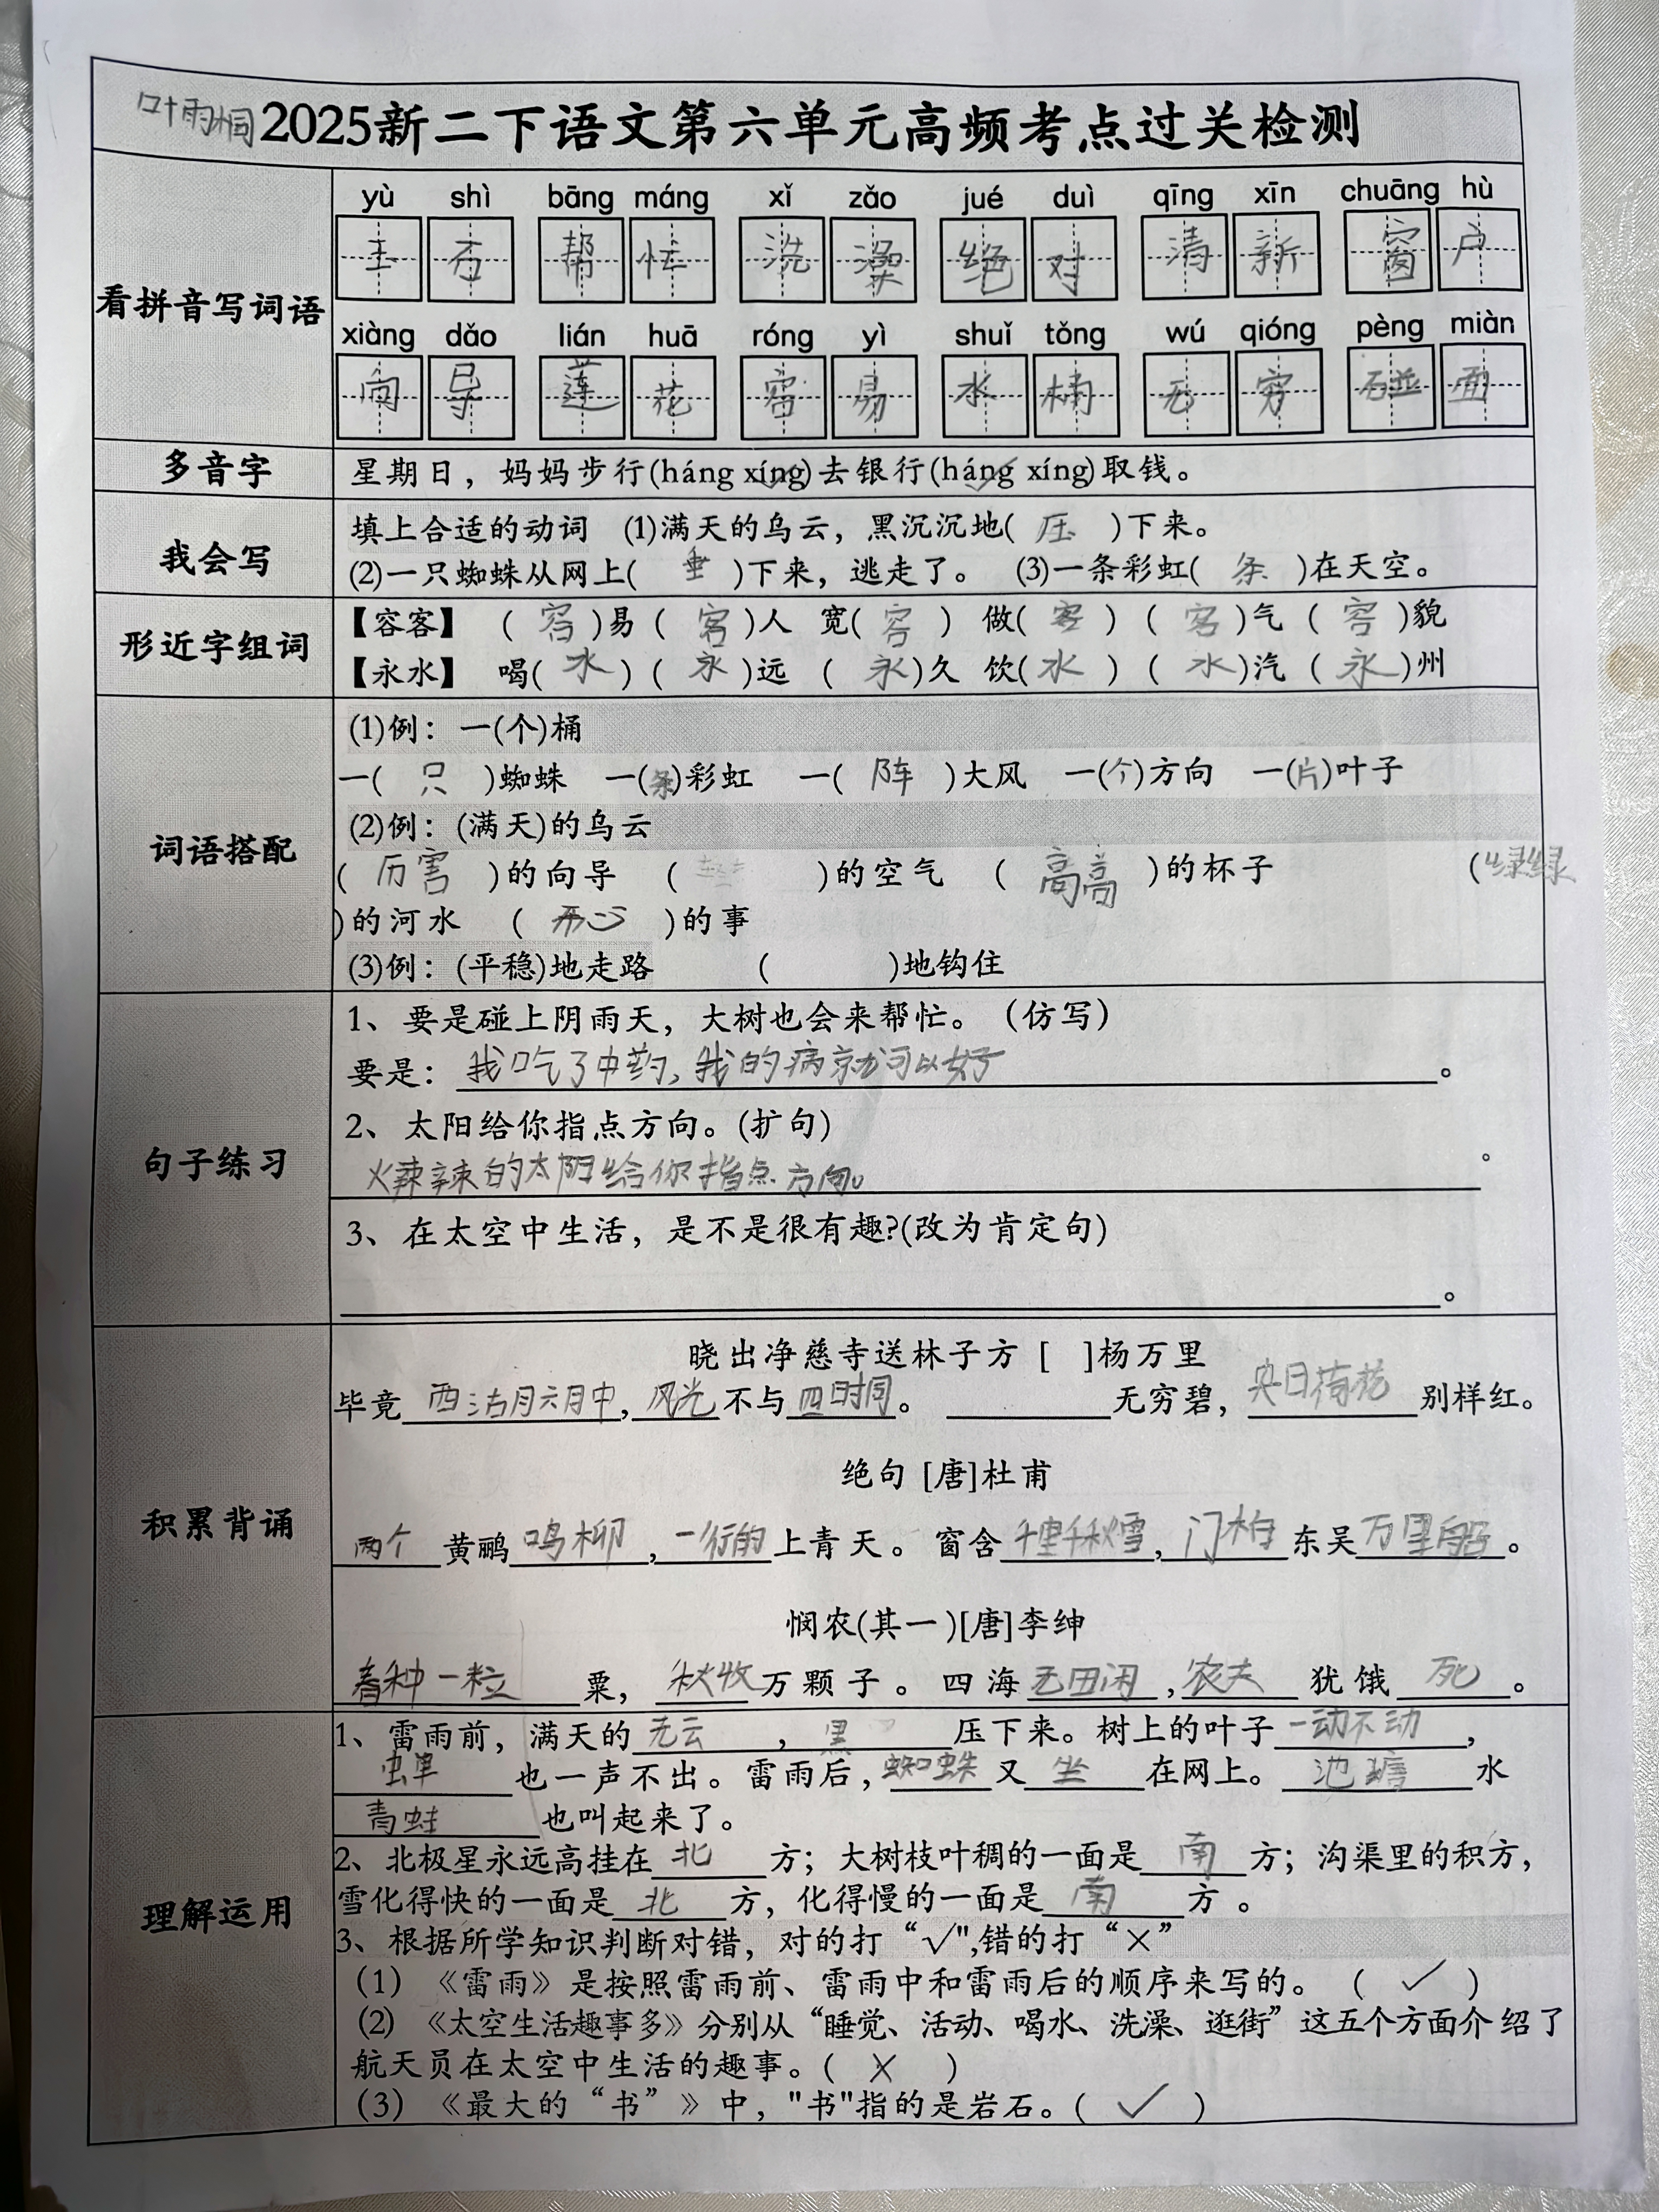 叶雨桐 2025新二下语文第六单元高频考点过关检测
看拼音写词语
yù shì bāng máng xǐ zǎo jué duì qīng xīn chuāng hù
石 帮 忙 洗 澡 绝 对 清 新 窗 户
xiàng dǎo lián huā róng yì shuǐ tǒng wú qióng pèng miàn
向 导 莲 花 容 易 水 桶 无 穷 碰 面
多音字
星期日，妈妈步行(háng xíng)去银行(háng xíng)取钱。
我会写
填上合适的动词 (1)满天的乌云，黑沉沉地( 压 )下来。
(2)一只蜘蛛从网上( 垂 )下来，逃走了。 (3)一条彩虹( 条 )在天空。
形近字组词
【容客】 ( 容 )易 ( 客 )人 宽( 容 ) 做( 客 ) ( 客 )气 ( 容 )貌
【永水】 喝( 水 ) ( 永 )远 ( 永 )久 饮( 水 ) ( 水 )汽 ( 永 )州
词语搭配
(1)例：一(个)桶
一( 只 )蜘蛛 一(条)彩虹 一( 阵 )大风 一(个)方向 一(片)叶子
(2)例：(满天)的乌云
( 厉害 )的向导 ( )的空气 ( 高高 )的杯子 (绿绿
)的河水 ( 开心 )的事
(3)例：(平稳)地走路 ( )地钩住
句子练习
1、要是碰上阴雨天，大树也会来帮忙。（仿写）
要是：我吃了中药，我的病就可以好。
2、太阳给你指点方向。(扩句)
火辣辣的太阳给你指点方向。。
3、在太空中生活，是不是很有趣?(改为肯定句)
。
积累背诵
晓出净慈寺送林子方 [ ]杨万里
毕竟西沽月六月中，风光不与四时同。 无穷碧，央日荷花别样红。
绝句 [唐]杜甫
两个黄鹂鸣柳，一行的上青天。窗含千里千秋雪，门柏东吴万里船。
悯农(其一)[唐]李绅
春种一粒粟，秋收万颗子。四海无田闲，农夫犹饿死。
理解运用
1、雷雨前，满天的无云，黑 压下来。树上的叶子一动不动，
蝉也一声不出。雷雨后，蜘蛛又坐在网上。池塘水
青蛙也叫起来了。
2、北极星永远高挂在北方；大树枝叶稠的一面是南方；沟渠里的积方，
雪化得快的一面是北方，化得慢的一面是南方 。
3、根据所学知识判断对错，对的打“√",错的打“×”
(1)《雷雨》是按照雷雨前、雷雨中和雷雨后的顺序来写的。( ✓ )
(2)《太空生活趣事多》分别从“睡觉、活动、喝水、洗澡、逛街”这五个方面介绍了
航天员在太空中生活的趣事。( × )
(3)《最大的“书”》中，"书"指的是岩石。( ✓ )